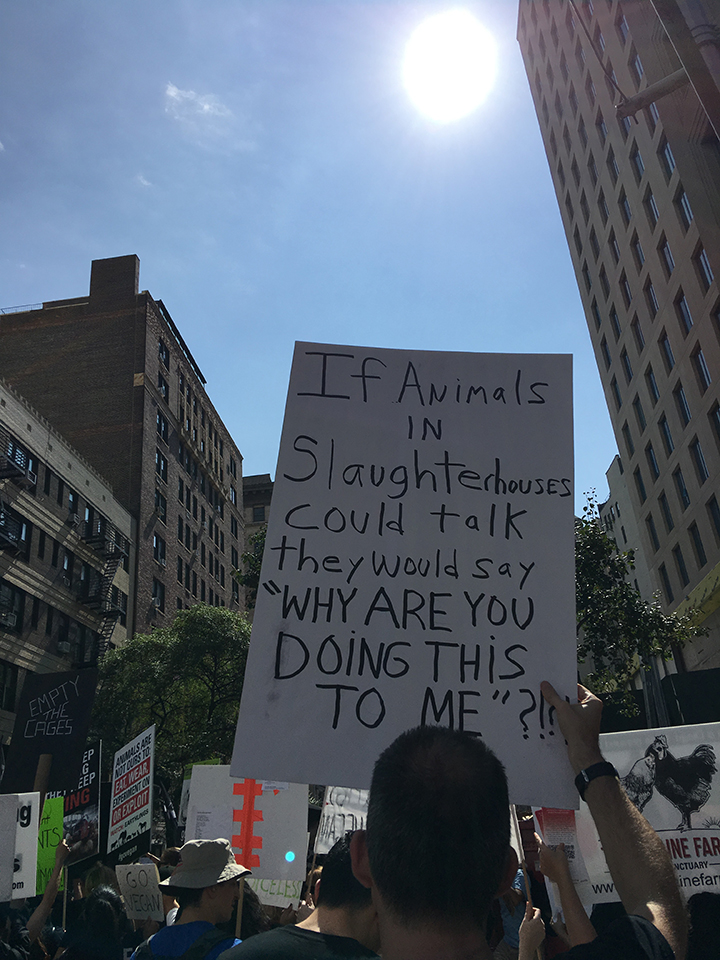 If Animals
IN
Slaughterhouses
could talk
they would say
"WHY ARE YOU
DOING THIS
TO ME"?!!?
EMPTY
THE
CAGES
ANIMALS ARE
NOT OURS TO
EAT WEAR
EXPERIMENT ON
OR EXPLOIT
GO
VEGAN
VOICELESS